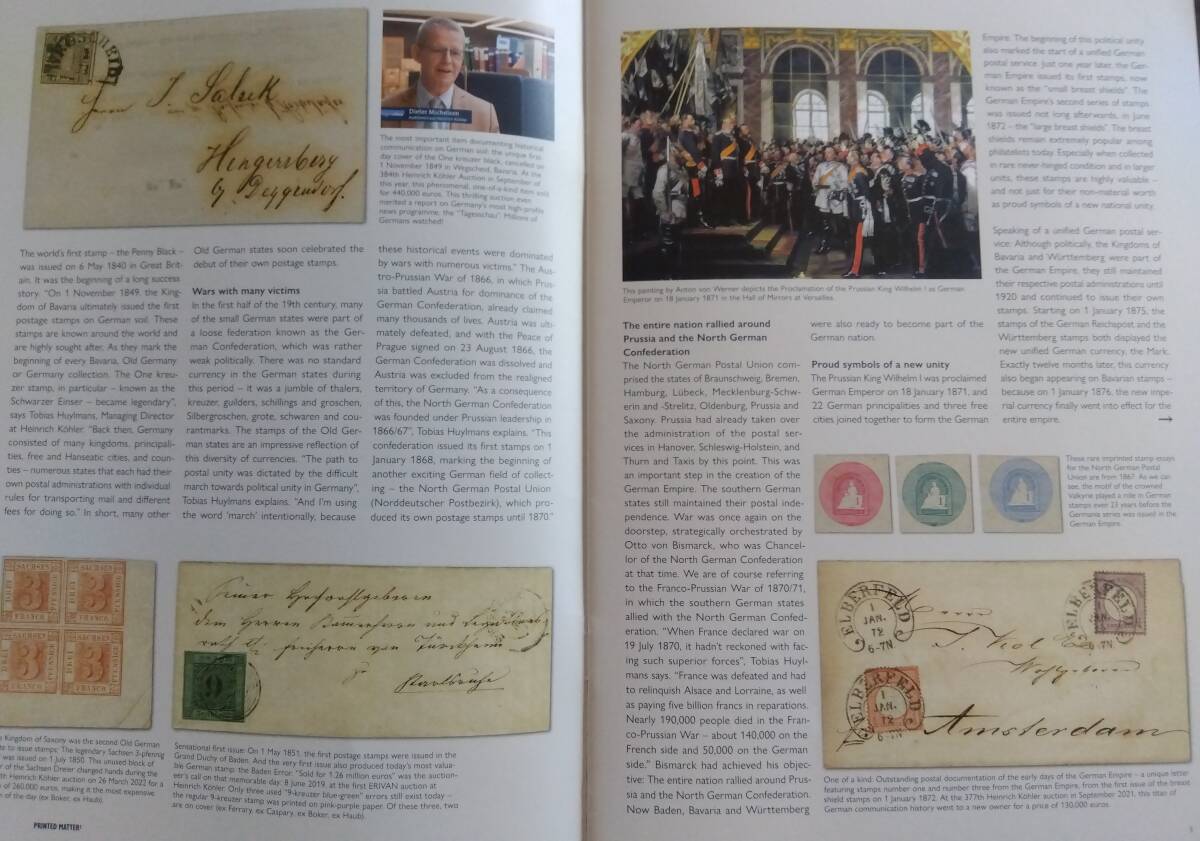 Herrn J. Salzek
Hengersberg
by Deggendorf.
Dieter Michelson
The most important item documenting historical
communication on German soil: the unique first
day cover of the One kreuzer black, cancelled on
1 November 1849 in Wegscheid, Bavaria. At the
384th Heinrich Köhler Auction in September of
this year, this phenomenal, one-of-a-kind item sold
for 440,000 euros. This thrilling auction even
merited a report on Germany's most high-profile
news programme, the "Tagesschau". Millions of
Germans watched!
The world's first stamp – the Penny Black –
was issued on 6 May 1840 in Great Brit-
ain. It was the beginning of a long success
story. "On 1 November 1849, the King-
dom of Bavaria ultimately issued the first
postage stamps on German soil. These
stamps are known around the world and
are highly sought after. As they mark the
beginning of every Bavaria, Old Germany
or Germany collection. The One kreu-
zer stamp, in particular – known as the
Schwarzer Einser – became legendary",
says Tobias Huylmans, Managing Director
at Heinrich Köhler. "Back then, Germany
consisted of many kingdoms, principali-
ties, free and Hanseatic cities, and coun-
ties – numerous states that each had their
own postal administrations with individual
rules for transporting mail and different
fees for doing so." In short, many other
Old German states soon celebrated the
debut of their own postage stamps.
Wars with many victims
In the first half of the 19th century, many
of the small German states were part of
a loose federation known as the Ger-
man Confederation, which was rather
weak politically. There was no standard
currency in the German states during
this period – it was a jumble of thalers,
kreuzer, guilders, schillings and groschen,
Silbergroschen, grote, schwaren and cou-
rantmarks. The stamps of the Old Ger-
man states are an impressive reflection of
this diversity of currencies. "The path to
postal unity was dictated by the difficult
march towards political unity in Germany",
Tobias Huylmans explains. "And I'm using
the word 'march' intentionally, because
these historical events were dominated
by wars with numerous victims." The Aus-
tro-Prussian War of 1866, in which Prus-
sia battled Austria for dominance of the
German Confederation, already claimed
many thousands of lives. Austria was ulti-
mately defeated, and with the Peace of
Prague signed on 23 August 1866, the
German Confederation was dissolved and
Austria was excluded from the realigned
territory of Germany. "As a consequence
of this, the North German Confederation
was founded under Prussian leadership in
1866/67", Tobias Huylmans explains. "This
confederation issued its first stamps on 1
January 1868, marking the beginning of
another exciting field of collect-
ing – the North German Postal Union
(Norddeutscher Postbezirk), which pro-
duced its own postage stamps until 1870."
SACHSEN
3
DREI
PFENNIGE
FRANCO
SACHSEN
3
DREI
PFENNIGE
FRANCO
SACHSEN
3
DREI
PFENNIGE
FRANCO
SACHSEN
3
DREI
PFENNIGE
FRANCO
Kingdom of Saxony was the second Old German
te to issue stamps: The legendary Sachsen 3-pfennig
was issued on 1 July 1850. This unused block of
r of the Sachsen Dreier changed hands during the
th Heinrich Köhler auction on 26 March 2022 for a
of 260,000 euros, making it the most expensive
n of the day (ex Boker, ex Haub).
9
Seiner Hochwohlgeboren
dem Herren Kammerherrn und
freiherrn von Türckheim
Karlsruhe
Sensational first issue: On 1 May 1851, the first postage stamps were issued in the
Grand Duchy of Baden. And the very first issue also produced today's most valua-
ble German stamp: the Baden Error. "Sold for 1.26 million euros" was the auction-
eer's call on that memorable day, 8 June 2019, at the first ERIVAN auction at
Heinrich Köhler. Only three used "9-kreuzer blue-green" errors still exist today –
the regular 9-kreuzer stamp was printed on pink-purple paper. Of these three, two
are on cover (ex Ferrary, ex Caspary, ex Boker, ex Haub).
PRINTED MATTER!
This painting by Anton von Werner depicts the Proclamation of the Prussian King Wilhelm I as German
Emperor on 18 January 1871 in the Hall of Mirrors at Versailles.
The entire nation rallied around
Prussia and the North German
Confederation
The North German Postal Union com-
prised the states of Braunschweig, Bremen,
Hamburg, Lübeck, Mecklenburg-Schwe-
rin and -Strelitz, Oldenburg, Prussia and
Saxony. Prussia had already taken over
the administration of the postal ser-
vices in Hanover, Schleswig-Holstein, and
Thurn and Taxis by this point. This was
an important step in the creation of the
German Empire. The southern German
states still maintained their postal inde-
pendence. War was once again on the
doorstep, strategically orchestrated by
Otto von Bismarck, who was Chancel-
lor of the North German Confederation
at that time. We are of course referring
to the Franco-Prussian War of 1870/71,
in which the southern German states
allied with the North German Confed-
eration. "When France declared war on
19 July 1870, it hadn't reckoned with fac-
ing such superior forces", Tobias Huyl-
mans says. "France was defeated and had
to relinquish Alsace and Lorraine, as well
as paying five billion francs in reparations.
Nearly 190,000 people died in the Fran-
co-Prussian War – about 140,000 on the
French side and 50,000 on the German
side." Bismarck had achieved his objec-
tive: The entire nation rallied around Prus-
sia and the North German Confederation.
Now Baden, Bavaria and Württemberg
were also ready to become part of the
German nation.
Proud symbols of a new unity
The Prussian King Wilhelm I was proclaimed
German Emperor on 18 January 1871, and
22 German principalities and three free
cities joined together to form the German
Empire. The beginning of this political unity
also marked the start of a unified German
postal service. Just one year later, the Ger-
man Empire issued its first stamps, now
known as the "small breast shields". The
German Empire's second series of stamps
was issued not long afterwards, in June
1872 – the "large breast shields". The breast
shields remain extremely popular among
philatelists today. Especially when collected
in rare never-hinged condition and in larger
units, these stamps are highly valuable –
and not just for their non-material worth
as proud symbols of a new national unity.
Speaking of a unified German postal ser-
vice: Although politically, the Kingdoms of
Bavaria and Württemberg were part of
the German Empire, they still maintained
their respective postal administrations until
1920 and continued to issue their own
stamps. Starting on 1 January 1875, the
stamps of the German Reichspost and the
Württemberg stamps both displayed the
new unified German currency, the Mark.
Exactly twelve months later, this currency
also began appearing on Bavarian stamps –
because on 1 January 1876, the new impe-
rial currency finally went into effect for the
entire empire. →
1
1
These rare imprinted stamp essays
for the North German Postal
Union are from 1867. As we can
see, the motif of the crowned
Valkyrie played a role in German
stamps even 23 years before the
Germania series was issued in the
German Empire.
ELBERFELD
1
JAN.
72
6-7N
ELBERFELD
JAN.
72
6-7N
ELBERFELD
1
JAN.
72
6-7N
Amsterdam
One of a kind: Outstanding postal documentation of the early days of the German Empire – a unique letter
featuring stamps number one and number three from the German Empire, from the first issue of the breast
shield stamps on 1 January 1872. At the 377th Heinrich Köhler auction in September 2021, this titan of
German communication history went to a new owner for a price of 130,000 euros.
5